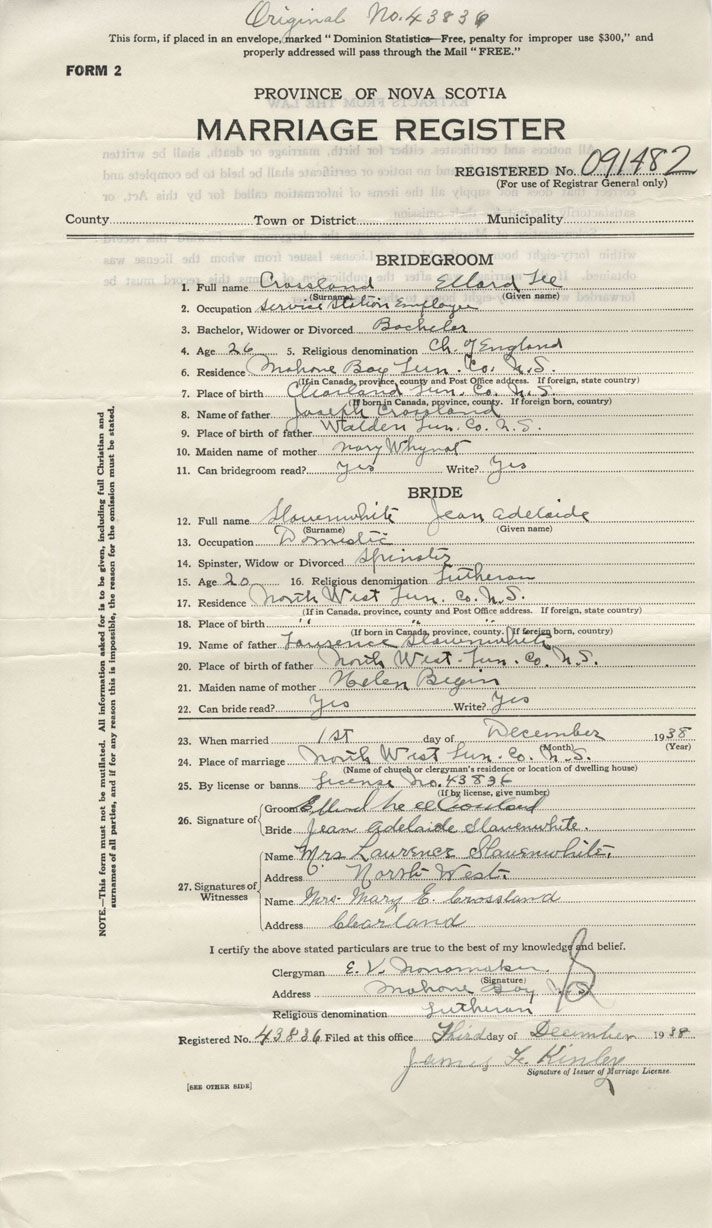 Original No. 43836
This form, if placed in an envelope, marked "Dominion Statistics—Free, penalty for improper use $300," and
properly addressed will pass through the Mail "FREE."
FORM 2
PROVINCE OF NOVA SCOTIA
MARRIAGE REGISTER
REGISTERED No. 091482
(For use of Registrar General only)
County Town or District Municipality
BRIDEGROOM
1. Full name Crossland Ellard Lee
(Surname) (Given name)
2. Occupation Service Station Employee
3. Bachelor, Widower or Divorced Bachelor
4. Age 26 5. Religious denomination Ch. of England
6. Residence Mahone Bay Lun. Co. N.S.
(If in Canada, province, county and Post Office address. If foreign, state country)
7. Place of birth Clearland Lun. Co. N.S.
(If born in Canada, province, county. If foreign born, country)
8. Name of father Joseph Crossland
9. Place of birth of father Walden Lun. Co. N.S.
10. Maiden name of mother Mary Whynot
11. Can bridegroom read? Yes Write? Yes
BRIDE
12. Full name Slauenwhite Jean Adelaide
(Surname) (Given name)
13. Occupation Domestic
14. Spinster, Widow or Divorced Spinster
15. Age 20 16. Religious denomination Lutheran
17. Residence North West Lun. Co. N.S.
(If in Canada, province, county and Post Office address. If foreign, state country)
18. Place of birth " " "
(If born in Canada, province, county. If foreign born, country)
19. Name of father Laurence Slauenwhite
20. Place of birth of father North West Lun. Co. N.S.
21. Maiden name of mother Helen Begin
22. Can bride read? Yes Write? Yes
23. When married 1st day of December 1938
(Month) (Year)
24. Place of marriage North West Lun. Co. N.S.
(Name of church or clergyman's residence or location of dwelling house)
25. By license or banns License No. 43836
(If by license, give number)
26. Signature of Groom Crossland
Bride Jean Adelaide Slauenwhite.
27. Signatures of Witnesses Name Mrs Laurence Slauenwhite,
Address North West.
Name Mrs. Mary E. Crossland
Address Clearland
I certify the above stated particulars are true to the best of my knowledge and belief.
Clergyman E. V. Nonamaker.
(Signature)
Address Mahone Bay N.S.
Religious denomination Lutheran
Registered No. 43836 Filed at this office Third day of December 1938
James F. Kinley
Signature of Issuer of Marriage License.
[SEE OTHER SIDE]
NOTE.—This form must not be mutilated. All information asked for is to be given, including full Christian and
surnames of all parties, and if for any reason this is impossible, the reason for the omission must be stated.